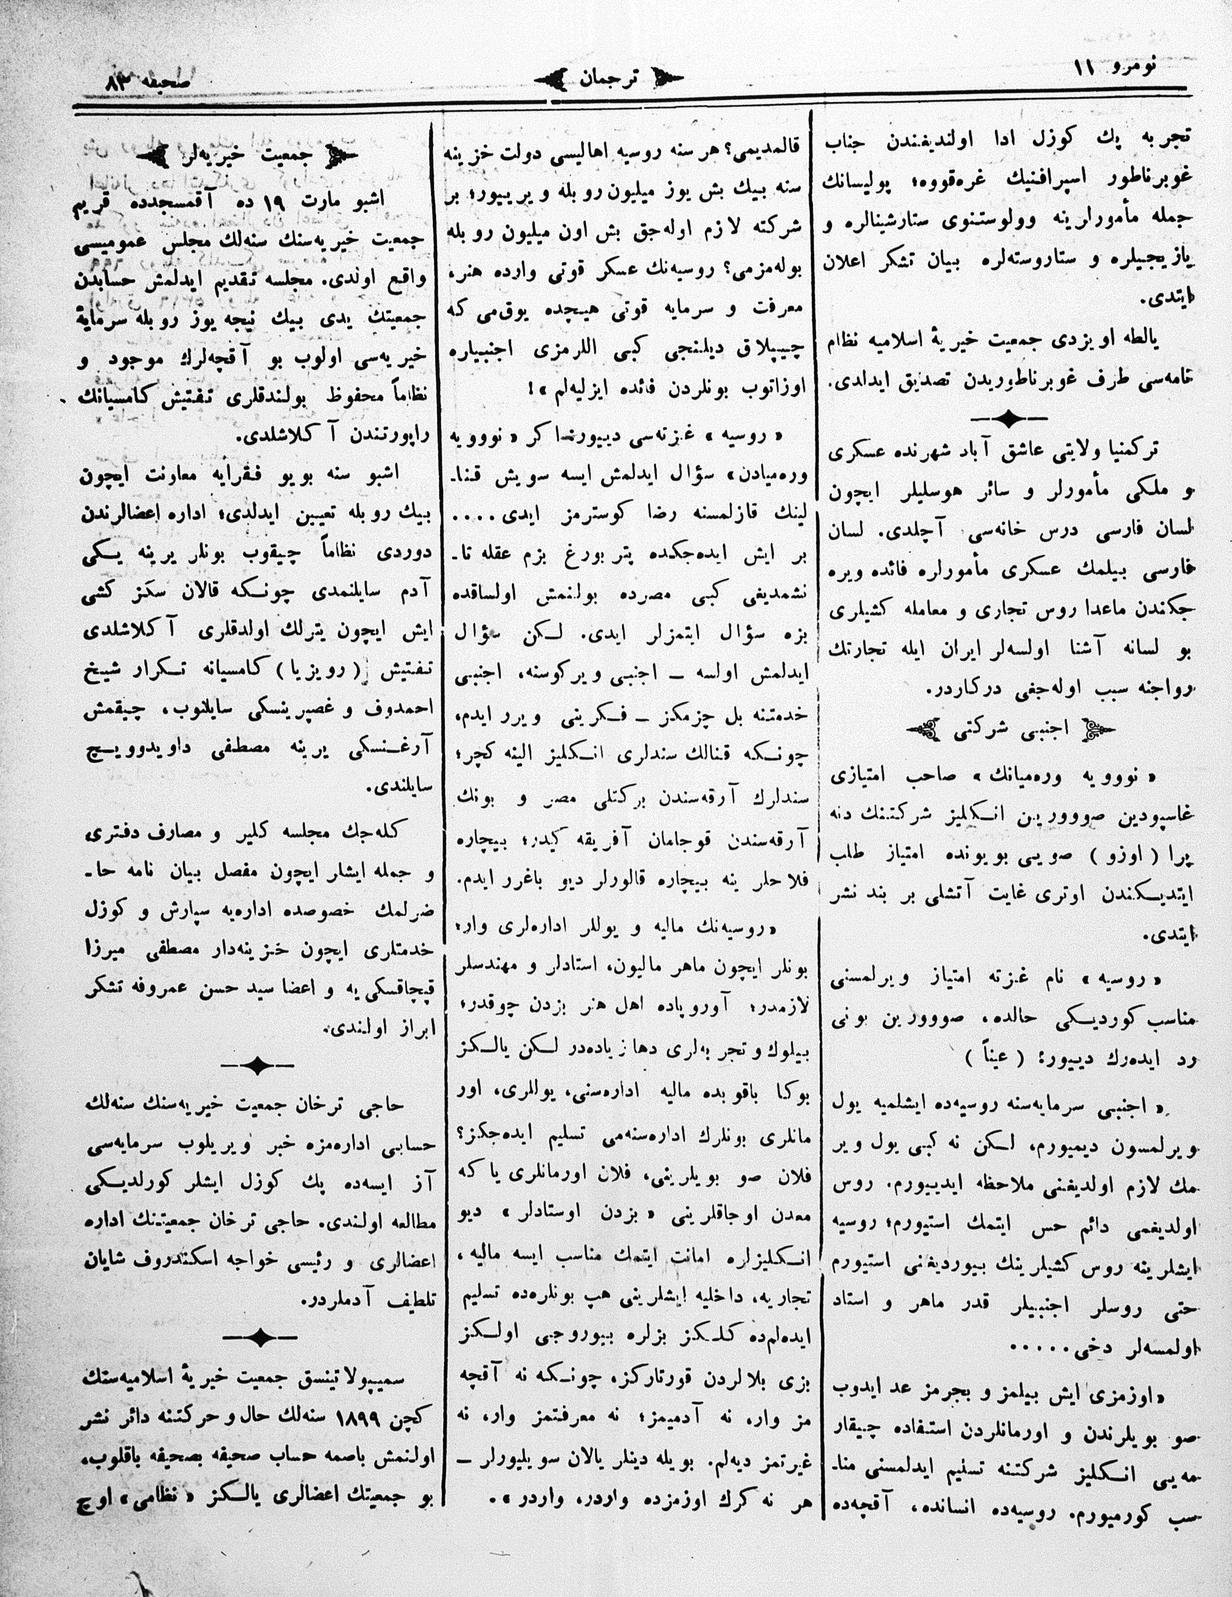 نومرو ١١
ترجمان
صحیفه ٨٣
تجربه پك كوزل ادا اولندیغندن جناب
غوبرناطور اسپرافنیك غره‌قووه؛ پولیسانك
جمله مأمورلرینه وولوستنوی ستارشنالره و
یازیجیلره و ستاروسته‌لره بیان تشكر اعلان
ایتدی.
یالطه اویزدی جمعیت خیریهٔ اسلامیه نظام
نامه‌سی طرف غوبرناطوریدن تصدیق ایدلدی.
تركمنیا ولایتی عاشق آباد شهرنده عسكری
و ملكی مأمورلر و سائر هوسلیلر ایچون
لسان فارسی درس خانه‌سی آچلدی. لسان
فارسی بیلمك عسكری مأمورلره فائده ویره
جكندن ماعدا روس تجاری و معامله كشیلری
بو لسانه آشنا اولسه‌لر ایران ایله تجارتك
رواجنه سبب اوله‌جغی دركاردر.
اجنبی شركتی
« نوویه وره‌میانك » صاحب امتیازی
غاسپودین صووورین انكلیز شركتنك دنه
پرا ( اوزو ) صویی بویونده امتیاز طلب
ایتدیكندن اوتری غایت آتشلی بر بند نشر
ایتدی.
« روسیه » نام غزته امتیاز ویرلمسنی
مناسب كوردیكی حالده، صووورین بونی
رد ایده‌رك دییور؛ ( عیناً )
« اجنبی سرمایه‌سنه روسیه‌ده ایشلمیه یول
ویرلمسون دیمیورم، لكن نه كبی یول ویر
مك لازم اولدیغنی ملاحظه ایدییورم. روس
اولدیغمی دائم حس ایتمك استیورم؛ روسیه
ایشلرینه روس كشیلرینك بیوردیغنی استیورم
حتی روسلر اجنبیلر قدر ماهر و استاد
اولمسه‌لر دخی.....
« اوزمزی ایش بیلمز و بجرمز عد ایدوب
صو بویلرندن و اورمانلردن استفاده چیقار
مه‌یی انكلیز شركتنه تسلیم ایدلمسنی منا۔
سب كورمیورم. روسیه‌ده انسانده، آقچه‌ده
قالمدیمی؟ هر سنه روسیه اهالیسی دولت خزینه
سنه بیك بش یوز میلیون روبله ویرییور؛ بر
شركته لازم اوله‌جق بش اون میلیون روبله
بوله‌مزمی؟ روسیه‌نك عسكر قوتی وارده هنر،
معرفت و سرمایه قوتی هیچده یوق‌می كه
چیپلاق دیلنجی كبی اللرمزی اجنبیاره
اوزاتوب بونلردن فائده ایزلیه‌لم »!
« روسیه » غزته‌سی دییورنداكر « نوویه
وره‌میادن » سؤال ایدلمش ایسه سویش قنا۔
لینك قازلمسنه رضا كوسترمز ایدی....
بر ایش ایده‌جكده پتربورغ بزم عقله تا۔
نشمدیغی كبی مصرده بولنمش اولساقده
بزه سؤال ایتمزلر ایدی. لكن سؤال
ایدلمش اولسه ـ اجنبی ویركوسنه، اجنبی
خدمتنه بل چزمكز ـ فكرینی ویرر ایدم،
چونكه قنالك سندلری انكلیز الینه كچر؛
سندلرك آرقه‌سندن بركتلی مصر و بونك
آرقه‌سندن قوجامان آفریقه كیدر؛ بیچاره
فلاحلر ینه بیچاره قالورلر دیو باغرر ایدم.
« روسیه‌نك مالیه و یوللر اداره‌لری وار؛
بونلر ایچون ماهر مالیون، استادلر و مهندسلر
لازمدر؛ آوروپاده اهل هنر بزدن چوقدر؛
بیلوك و تجربه‌لری دها زیاده‌در لكن یالكز
بوكا باقوبده مالیه اداره‌سنی، یوللری، اور
مانلری بونلرك اداره‌سنه‌می تسلیم ایده‌جكز؟
فلان صو بویلرینی، فلان اورمانلری یا كه
معدن اوجاقلرینی « بزدن اوستادلر » دیو
انكلیزلره امانت ایتمك مناسب ایسه مالیه،
تجاریه، داخلیه ایشلرینی هپ بونلره‌ده تسلیم
ایده‌لم‌ده كلكز بزلره بیوروجی اولكز
بزی بلالردن قورتاركز، چونكه نه آقچه
مز وار، نه آدمیمز؛ نه معرفتمز وار، نه
غیرتمز دیه‌لم. بویله دینلر یالان سویلیورلر ـ
هر نه كرك اوزمزده واردر، واردر ».
جمعیت خیریه‌لر
اشبو مارت ١٩ ده آقمسجدده قریم
جمعیت خیریه‌سنك سنه‌لك مجلس عمومیسی
واقع اولدی. مجلسه تقدیم ایدلمش حسابدن
جمعیتك یدی بیك نیجه یوز روبله سرمایهٔ
خیریه‌سی اولوب بو آقچه‌لرك موجود و
نظاماً محفوظ بولندقلری تفتیش كامسیانك
راپورتندن آكلاشلدی.
اشبو سنه بویو فقرایه معاونت ایچون
بیك روبله تعیین ایدلدی؛ اداره اعضالرندن
دوردی نظاماً چیقوب بونلر یرینه یكی
آدم سایلنمدی چونكه قالان سكز كشی
ایش ایچون یترلك اولدقلری آكلاشلدی
تفتیش ( رویزیا ) كامسیانه تكرار شیخ
احمدوف و غصپرینسكی سایلنوب، چیقمش
آرغنسكی یرینه مصطفی داویدوویچ
سایلندی.
كله‌جك مجلسه كلیر و مصارف دفتری
و جمله ایشلر ایچون مفصل بیان نامه حا۔
ضرلمك خصوصده اداره‌یه سپارش و كوزل
خدمتلری ایچون خزینه‌دار مصطفی میرزا
قپچاقسكی یه و اعضا سید حسن عمروفه تشكر
ابراز اولندی.
حاجی ترخان جمعیت خیریه‌سنك سنه‌لك
حسابی اداره‌مزه خبر ویریلوب سرمایه‌سی
آز ایسه‌ده پك كوزل ایشلر كورلدیكی
مطالعه اولندی. حاجی ترخان جمعیتنك اداره
اعضالری و رئیسی خواجه اسكندروف شایان
تلطیف آدملردر.
سمیپولاتینسق جمعیت خیریهٔ اسلامیه‌سنك
كچن ١٨٩٩ سنه‌لك حال و حركتنه دائر نشر
اولنمش باصمه حساب صحیفه بصحیفه باقلوب،
بو جمعیتك اعضالری یالكز « نظامی » اوچ